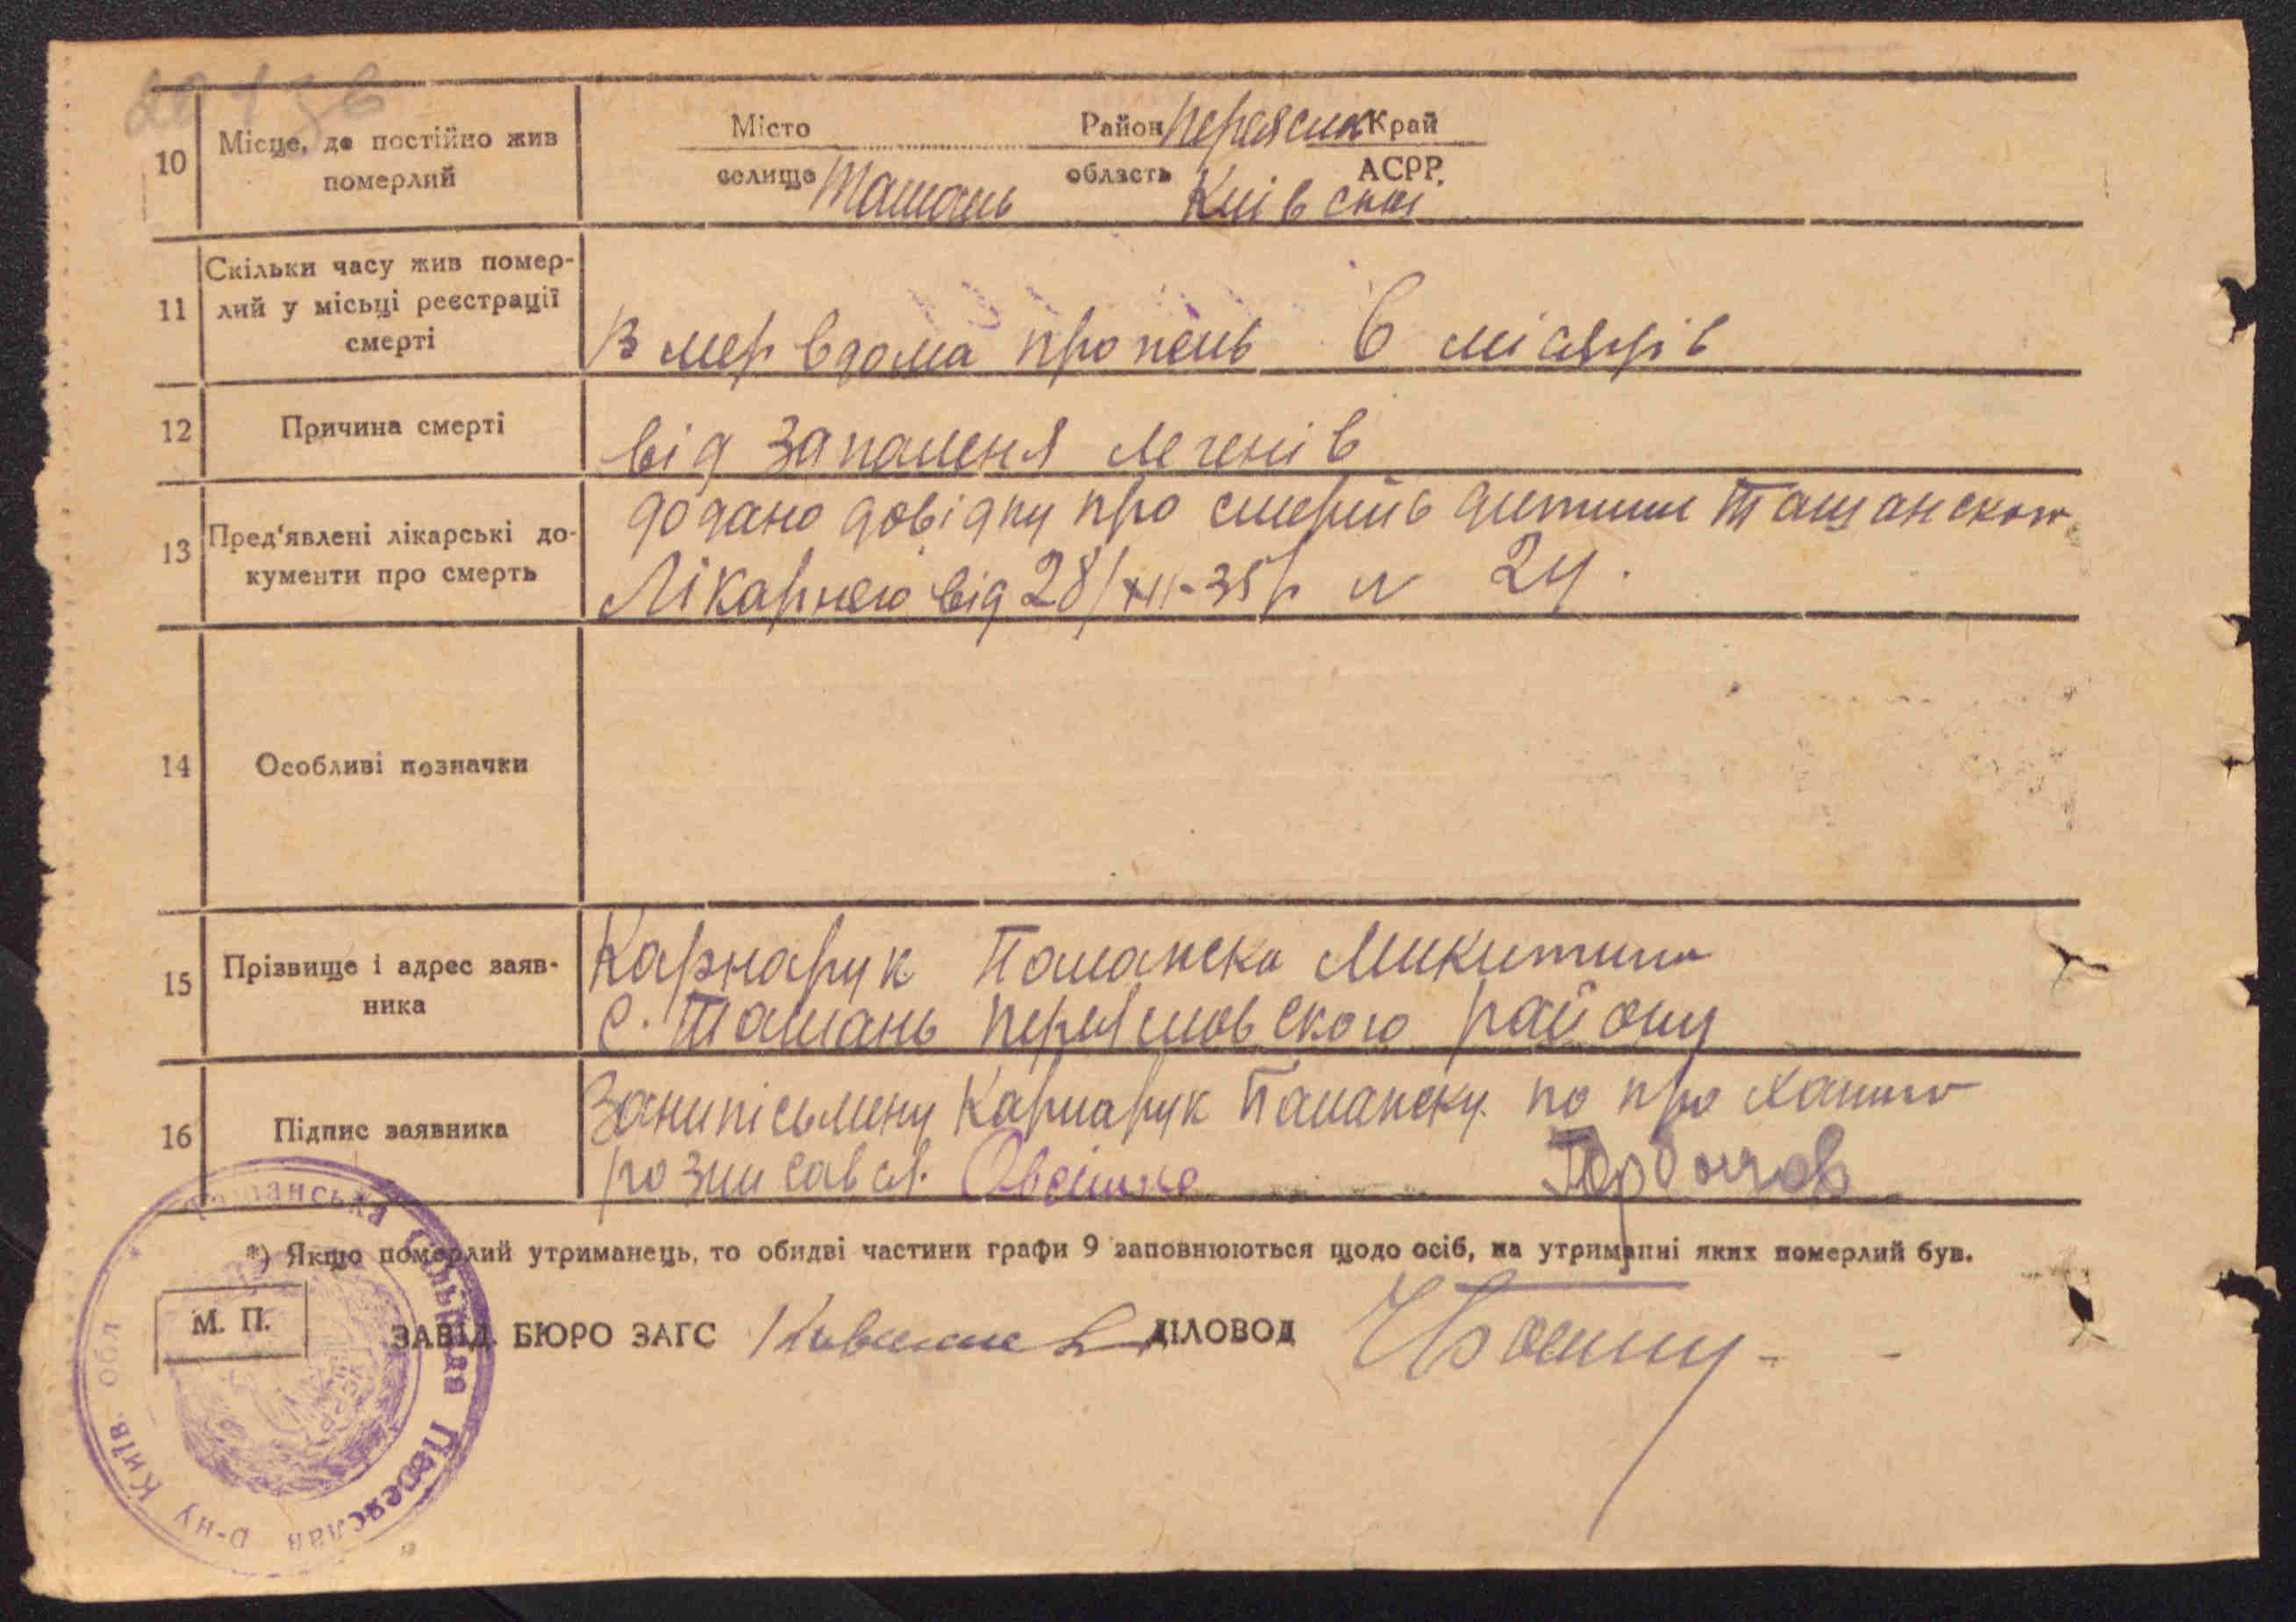 10 Місце, де постійно жив померлий
Місто Район Переяслав Край
селище Ташань область Київскої АСРР.
11 Скільки часу жив помер-
лий у місьці реєстрації
смерті
Вмер вдома пропень 6 місяців
12 Причина смерті
від запаленя легенів
13 Пред'явлені лікарські до-
кументи про смерть
додано довідку про смерть дитини Ташанскою
Лікарнею від 28/XII-35р № 24.
14 Особливі позначки
15 Прізвище і адрес заяв-
ника
Карнарук Палажка Микитина
с. Ташань Переяславского району
16 Підпис заявника
За ниписьмену Карнарук Палажку по проханню
розписався.
*) Якщо померлий утриманець, то обидві частини графи 9 заповнюються щодо осіб, на утриманні яких померлий був.
М. П.
ЗАВІД. БЮРО ЗАГС ДІЛОВОД
Ташанська Сільрада Переяслав р-ну Київ. обл